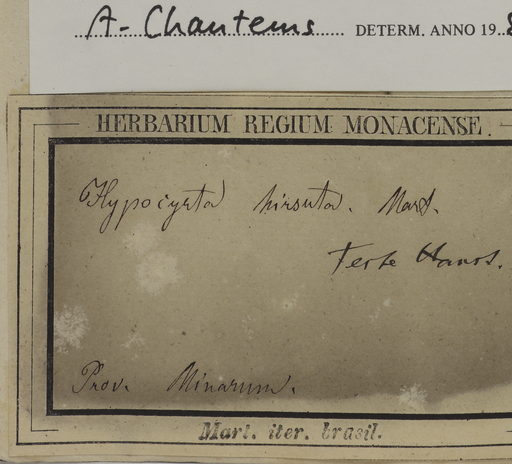 A. Chautems DETERM. ANNO 19..8
HERBARIUM REGIUM MONACENSE.
Hypocyrta hirsuta. Mart.
teste Hanst.
Prov. Minarum.
Mart. iter. brasil.